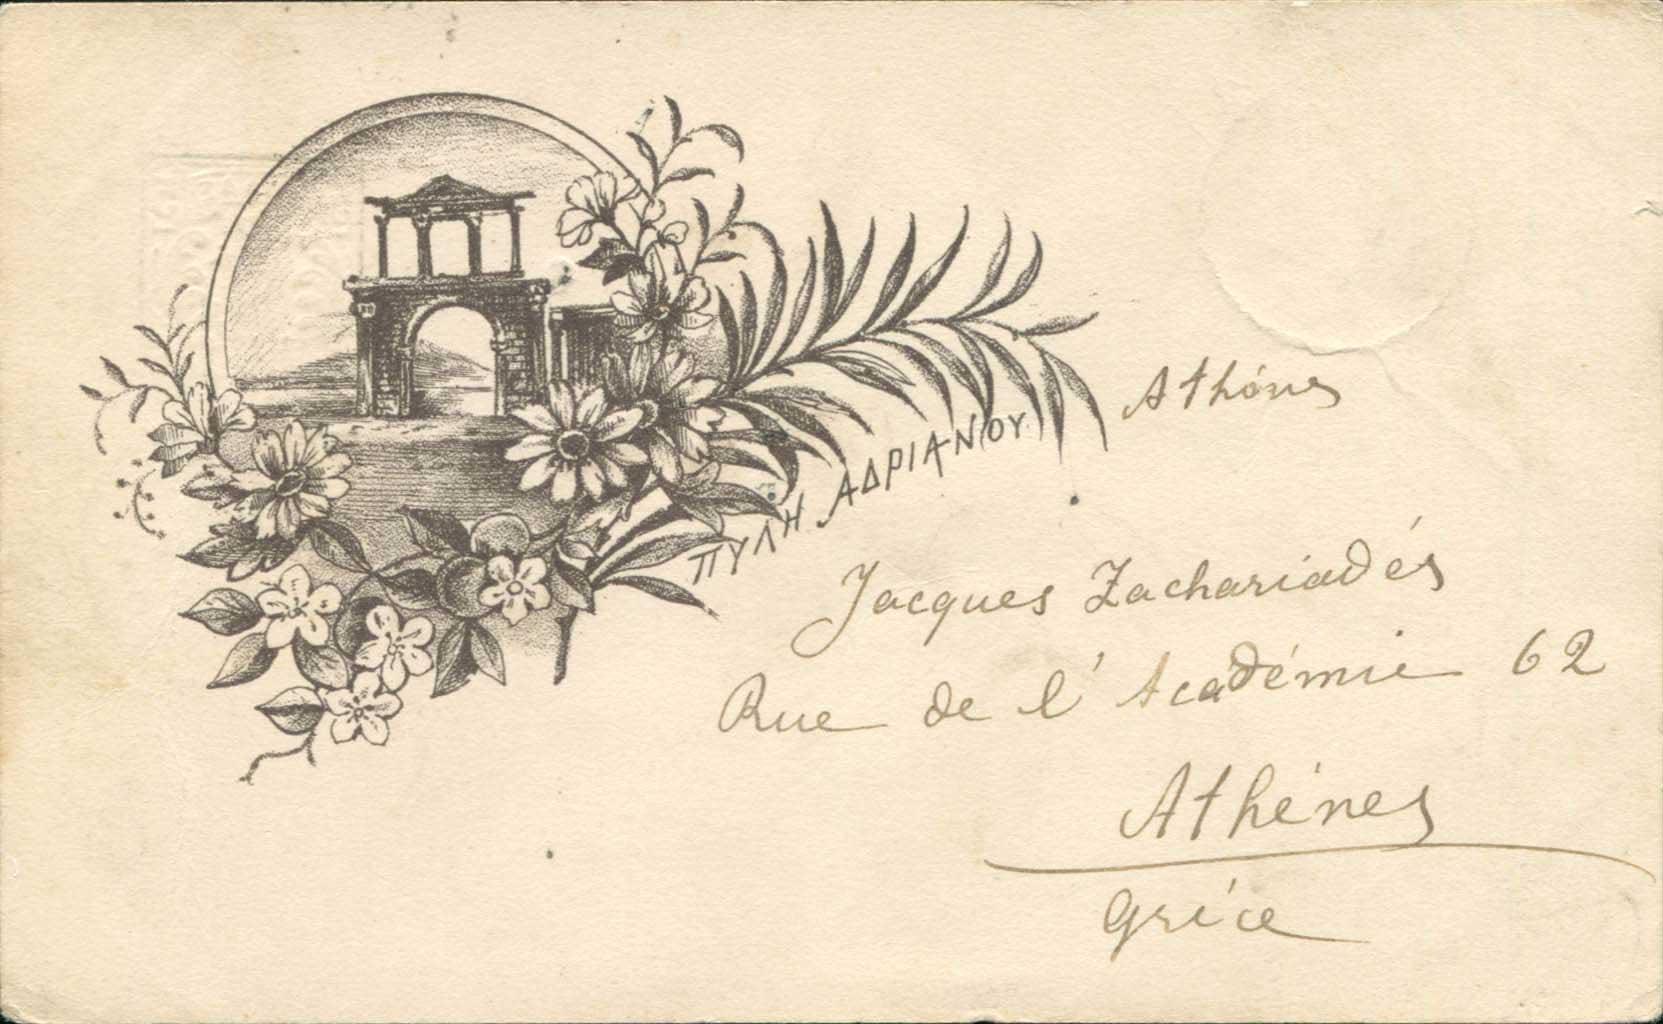 ΠΥΛΗ ΑΔΡΙΑΝΟΥ
Athénes
Jacques Zachariadés
Rue de l'Académie 62
Athénes
Gréce